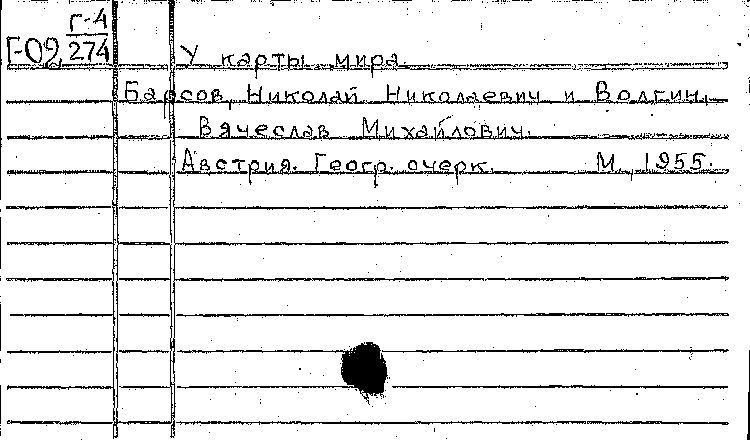 Г-4
Г-02 274
У карты мира.
Барсов, Николай Николаевич и Волгин,
Вячеслав Михайлович.
Австрия. Геогр. очерк. М., 1955.